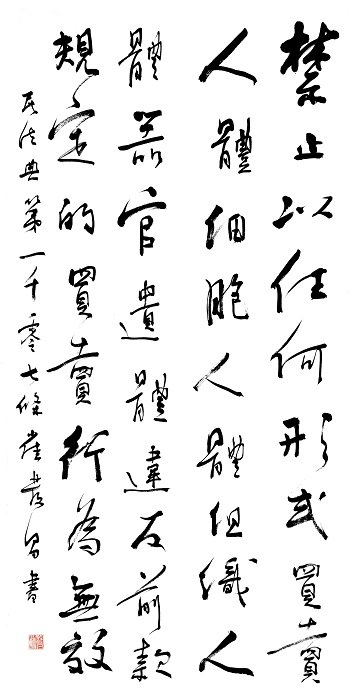 禁止以任何形式買賣
人體細胞人體組織人
體器官遺體違反前款
規定的買賣行為無效
民法典第一千零七條崔書